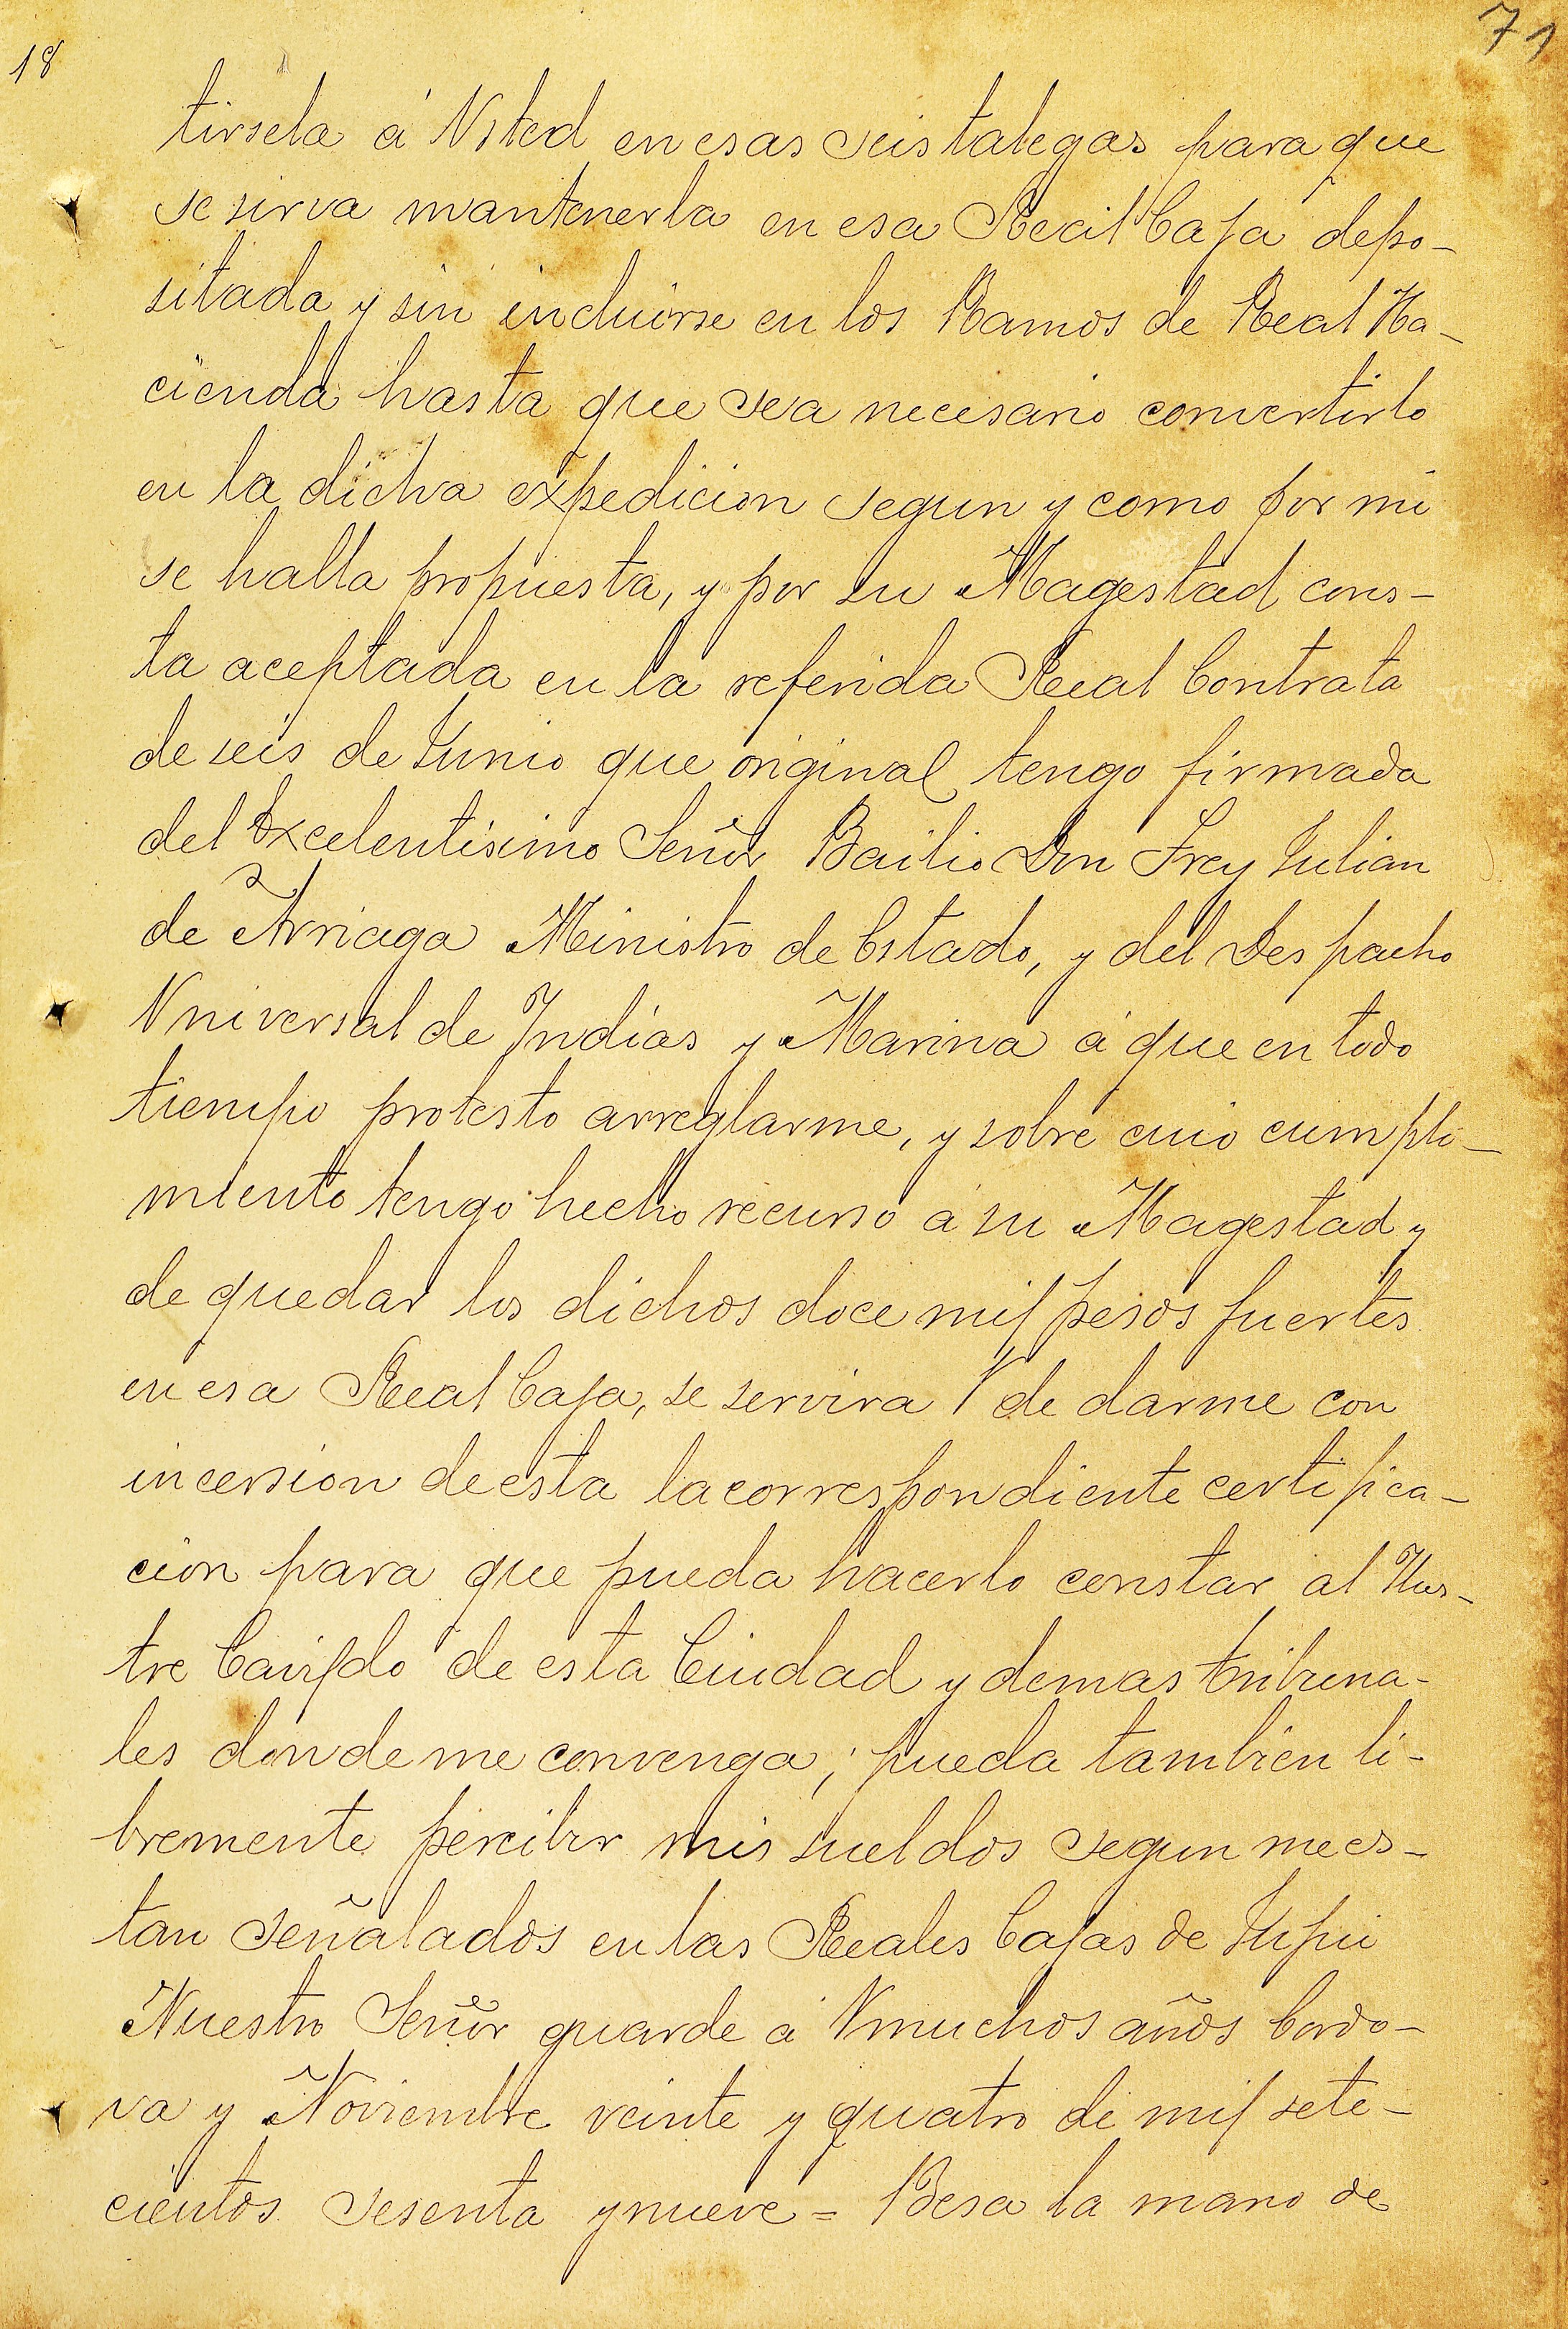 18
71
tirsela á Usted en esas seis talegas para que
se sirva mantenerla en esa Real Caja depo-
sitada y sin incluirse en los Ramos de Real Ha-
cienda hasta que sea necesario convertirlo
en la dicha expedicion segun y como por mi
se halla propuesta, y por su Magestad cons-
ta aceptada en la referida Real Contrata
de seis de Junio que original tengo firmada
del Excelentisimo Señor Bailio Don Frey Julian
de Arriaga Ministro de Estado, y del Despacho
Universal de Indias y Marina á que en todo
tiempo protesto arreglarme, y sobre cuio cumpli-
miento tengo hecho recurso á su Magestad y
de quedar los dichos doce mil pesos fuertes
en esa Real Caja, se servira V de darme con
incersion de esta la correspondiente certifica-
cion para que pueda hacerlo constar al Ilus-
tre Cavildo de esta Ciudad y demas tribuna-
les donde me convenga; pueda tambien li-
bremente percibir mis sueldos segun me es-
tan señalados en las Reales Cajas de Jujui
Nuestro Señor guarde á V muchos años Cordo-
va y Noviembre veinte y quatro de mil sete-
cientos sesenta y nueve = Besa la mano de